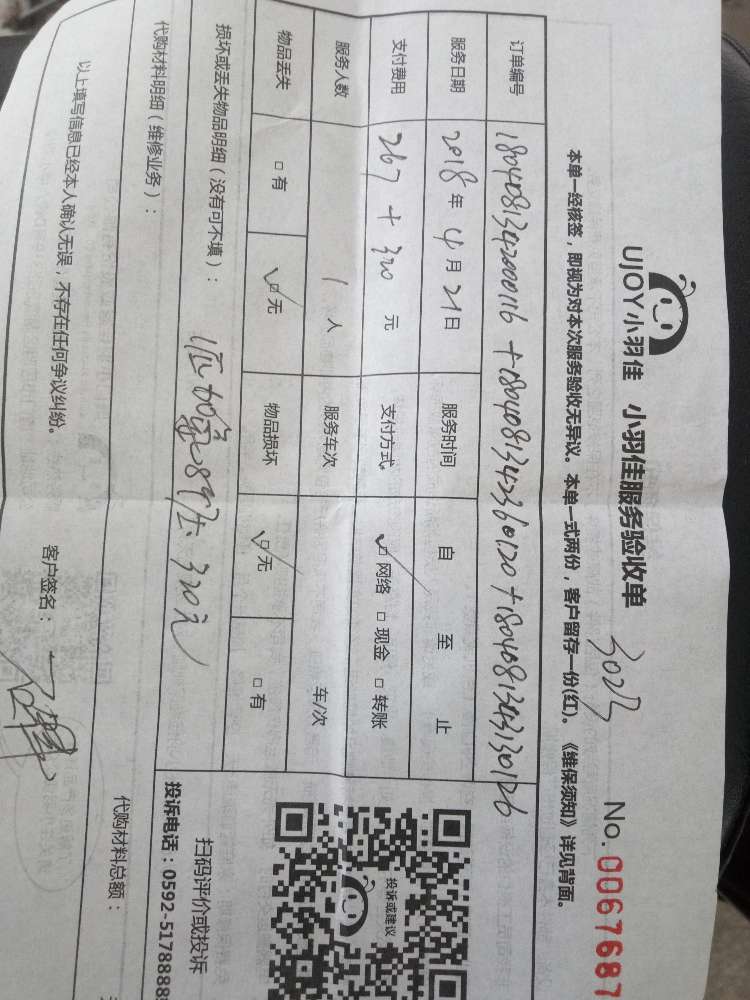 UJOY小羽佳 小羽佳服务验收单 No. 0067687
本单一经核签，即视为对本次服务验收无异议。本单一式两份，客户留存一份(红)。《维保须知》详见背面。
订单编号 1804081342000116 + 1804081342360120 + 1804081343130126
服务日期 2018年 4月 21日 服务时间 自 至 止
支付费用 267 + 320 元 支付方式 ☑网络 □现金 □转账
服务人数 1 人 服务车次 车/次
物品丢失 □有 ☑无 物品损坏 ☑无 □有
损坏或丢失物品明细（没有可不填）： 320元
代购材料明细（维修业务）： 代购材料总额：
以上填写信息已经本人确认无误，不存在任何争议纠纷。 客户签名：
投诉或建议
扫码评价或投诉
投诉电话：0592-5178888